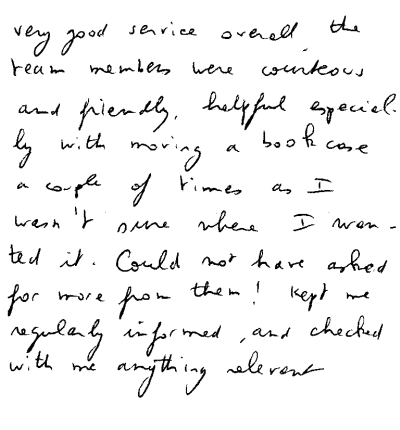 very good service overall, the
team members were courteous
and friendly, helpful especial-
ly with moving a bookcase
a couple of times as I
wasn't sure where I wan-
ted it. Could not have asked
for more from them! Kept me
regularly informed, and checked
with me anything relevant